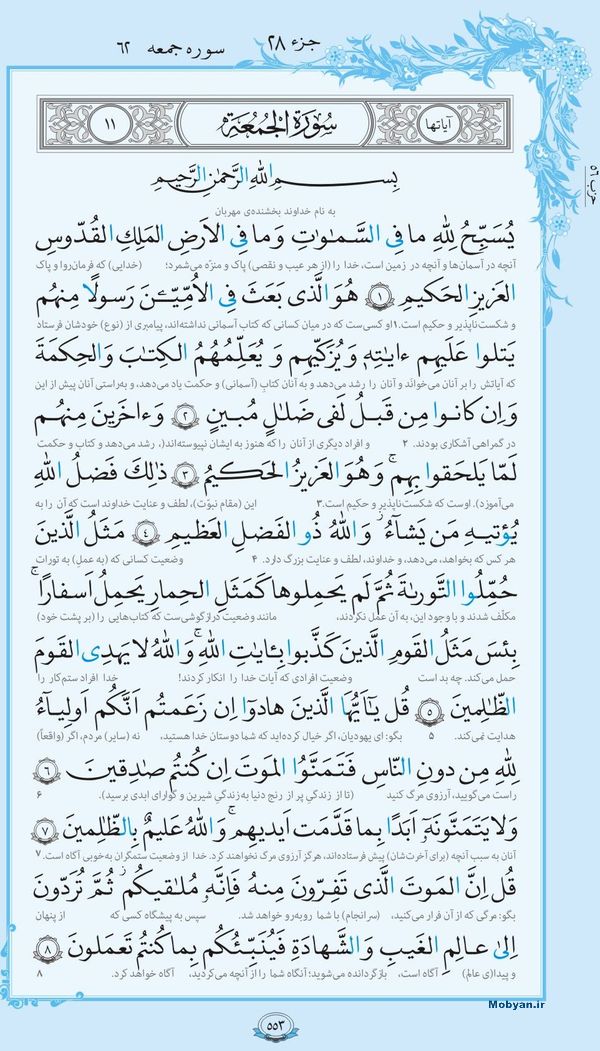 جزء ۲۸ سوره جمعه ۶۲
حزب ۵۶
آیاتها سُورَةُ الجُمُعَة ۱۱
بِسمِ اللهِ الرَّحمٰنِ الرَّحیمِ
به نام خداوند بخشنده‌ی مهربان
یُسَبِّحُ لِلّٰهِ ما فِی السَّمٰوٰتِ وَما فِی الاَرضِ المَلِكِ القُدّوسِ
آنچه در آسمان‌ها و آنچه در زمین است، خدا را (از هر عیب و نقصی) پاک و منزّه می‌شمرد؛ (خدایی) که فرمان‌روا و پاک
العَزیزِ الحَکیمِ ۱ هُوَ الَّذی بَعَثَ فِی الاُمِّیّـٖنَ رَسولًا مِنهُم
و شکست‌ناپذیر و حکیم است. ۱ او کسی‌ست که در میان کسانی که کتاب آسمانی نداشته‌اند، پیامبری از (نوع) خودشان فرستاد
یَتلوا عَلَیهِم ءایٰتِهٖ وَیُزَکّیهِم وَ یُعَلِّمُهُمُ الکِتٰبَ وَالحِکمَةَ
که آیاتش را بر آنان می‌خوانَد و آنان را رشد می‌دهد و به آنان کتاب (آسمانی) و حکمت یاد می‌دهد، و به‌راستی آنان پیش از این
وَاِن کانوا مِن قَبلُ لَفی ضَلٰلٍ مُبینٍ ۲ وَءاخَرینَ مِنهُم
در گمراهی آشکاری بودند. ۲ و افراد دیگری از آنان را که هنوز به ایشان نپیوسته‌اند(، رشد می‌دهد و کتاب و حکمت
لَمّا یَلحَقوا بِهِم ۚ وَهُوَ العَزیزُ الحَکیمُ ۳ ذٰلِكَ فَضلُ اللهِ
می‌آموزد). اوست که شکست‌ناپذیر و حکیم است. ۳ این (مقام نبوّت)، لطف و عنایت خداوند است که آن را به
یُؤتیهِ مَن یَشآءُ ۚ وَاللهُ ذُو الفَضلِ العَظیمِ ۴ مَثَلُ الَّذینَ
هر کس که بخواهد، می‌دهد، و خداوند، لطف و عنایت بزرگ دارد. ۴ وضعیت کسانی که (به عملِ) به تورات
حُمِّلُوا التَّورىٰةَ ثُمَّ لَم یَحمِلوها کَمَثَلِ الحِمارِ یَحمِلُ اَسفارًا ۚ
مکلّف شدند و با وجود این، به آن عمل نکردند، مانند وضعیت درازگوشی‌ست که کتاب‌هایی را (بر پشت خود)
بِئسَ مَثَلُ القَومِ الَّذینَ کَذَّبوا بِـٔایاتِ اللهِ ۚ وَاللهُ لا یَهدِی القَومَ
حمل می‌کند. چه بد است وضعیت افرادی که آیات خدا را انکار کردند! خدا افراد ستم‌کار را
الظّالِمینَ ۵ قُل یٰٓاَیُّهَا الَّذینَ هادوٓا اِن زَعَمتُم اَنَّکُم اَولِیآءُ
هدایت نمی‌کند. ۵ بگو: ای یهودیان، اگر خیال کرده‌اید که شما دوستان خدا هستید، نه (سایر) مردم، اگر (واقعاً)
لِلّٰهِ مِن دونِ النّاسِ فَتَمَنَّوُا المَوتَ اِن کُنتُم صٰدِقینَ ۶
راست می‌گویید، آرزوی مرگ کنید (تا از زندگیِ پر از رنج دنیا به زندگیِ شیرین و گوارای ابدی برسید). ۶
وَلا یَتَمَنَّونَهٗٓ اَبَدًا بِما قَدَّمَت اَیدیهِم ۚ وَاللهُ عَلیمٌ بِالظّٰلِمینَ ۷
آنان به سبب آنچه (برای آخرتشان) پیش فرستاده‌اند، هرگز آرزوی مرگ نخواهند کرد. خدا از وضعیت ستمگران به‌خوبی آگاه است. ۷
قُل اِنَّ المَوتَ الَّذی تَفِرّونَ مِنهُ فَاِنَّهٗ مُلٰقیکُم ۖ ثُمَّ تُرَدّونَ
بگو: مرگی که از آن فرار می‌کنید، (سرانجام) با شما روبه‌رو خواهد شد. سپس به پیشگاه کسی که از پنهان
اِلىٰ عالِمِ الغَیبِ وَالشَّهادَةِ فَیُنَبِّئُکُم بِما کُنتُم تَعمَلونَ ۸
و پیدا(ی عالم) آگاه است، بازگردانده می‌شوید؛ آنگاه شما را از آنچه می‌کردید، آگاه خواهد کرد. ۸
Mobyan.ir
۵۵۳